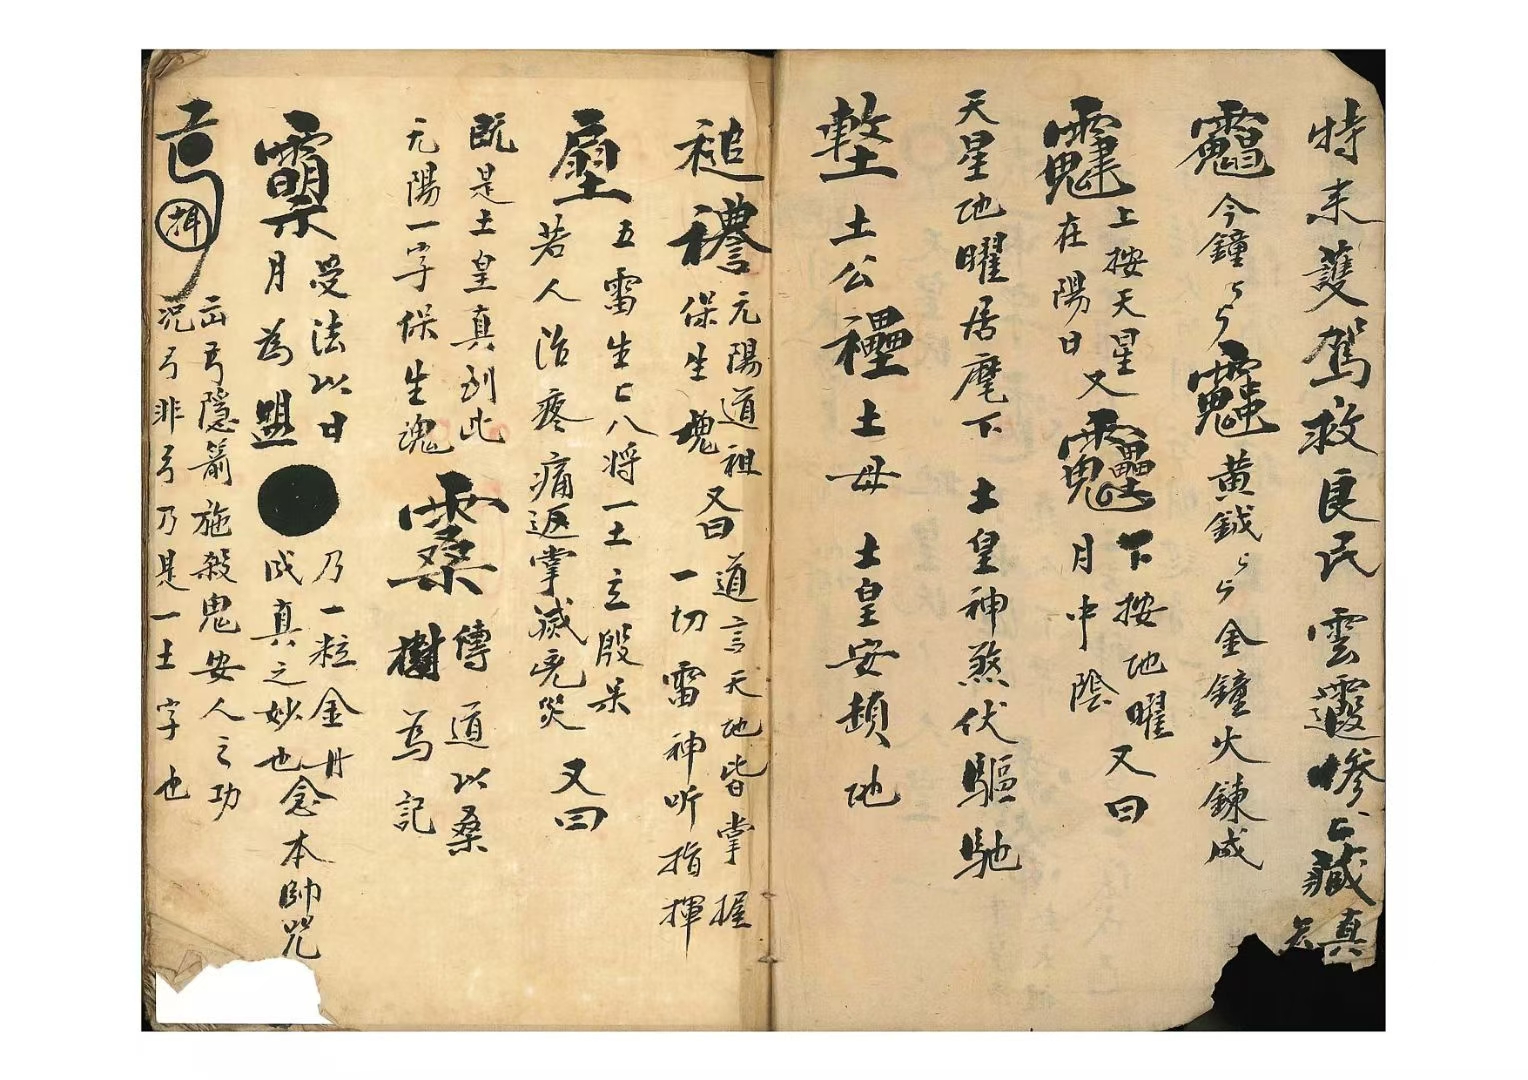 特来護駕救良民雲霞慘亡藏真
今鐘〻黄鉞〻金鐘火鍊成
上按天星在陽日又下按地曜月中陰又曰
天星地曜居麾下土皇神煞伏驅馳
土公土母土皇安鎮地
元陽道祖保生魂又曰道言天地皆掌握一切雷神听指揮
五雷生亡八将一土立殷
若人治疼痛返掌滅免災又曰
既是土皇真到此
元陽一字保生魂傳道以桑樹為記
受法以日月為盟乃一粒金丹成真之妙也念本帥咒
弓隱箭施殺鬼安人之功
况弓非弓乃是一土字也